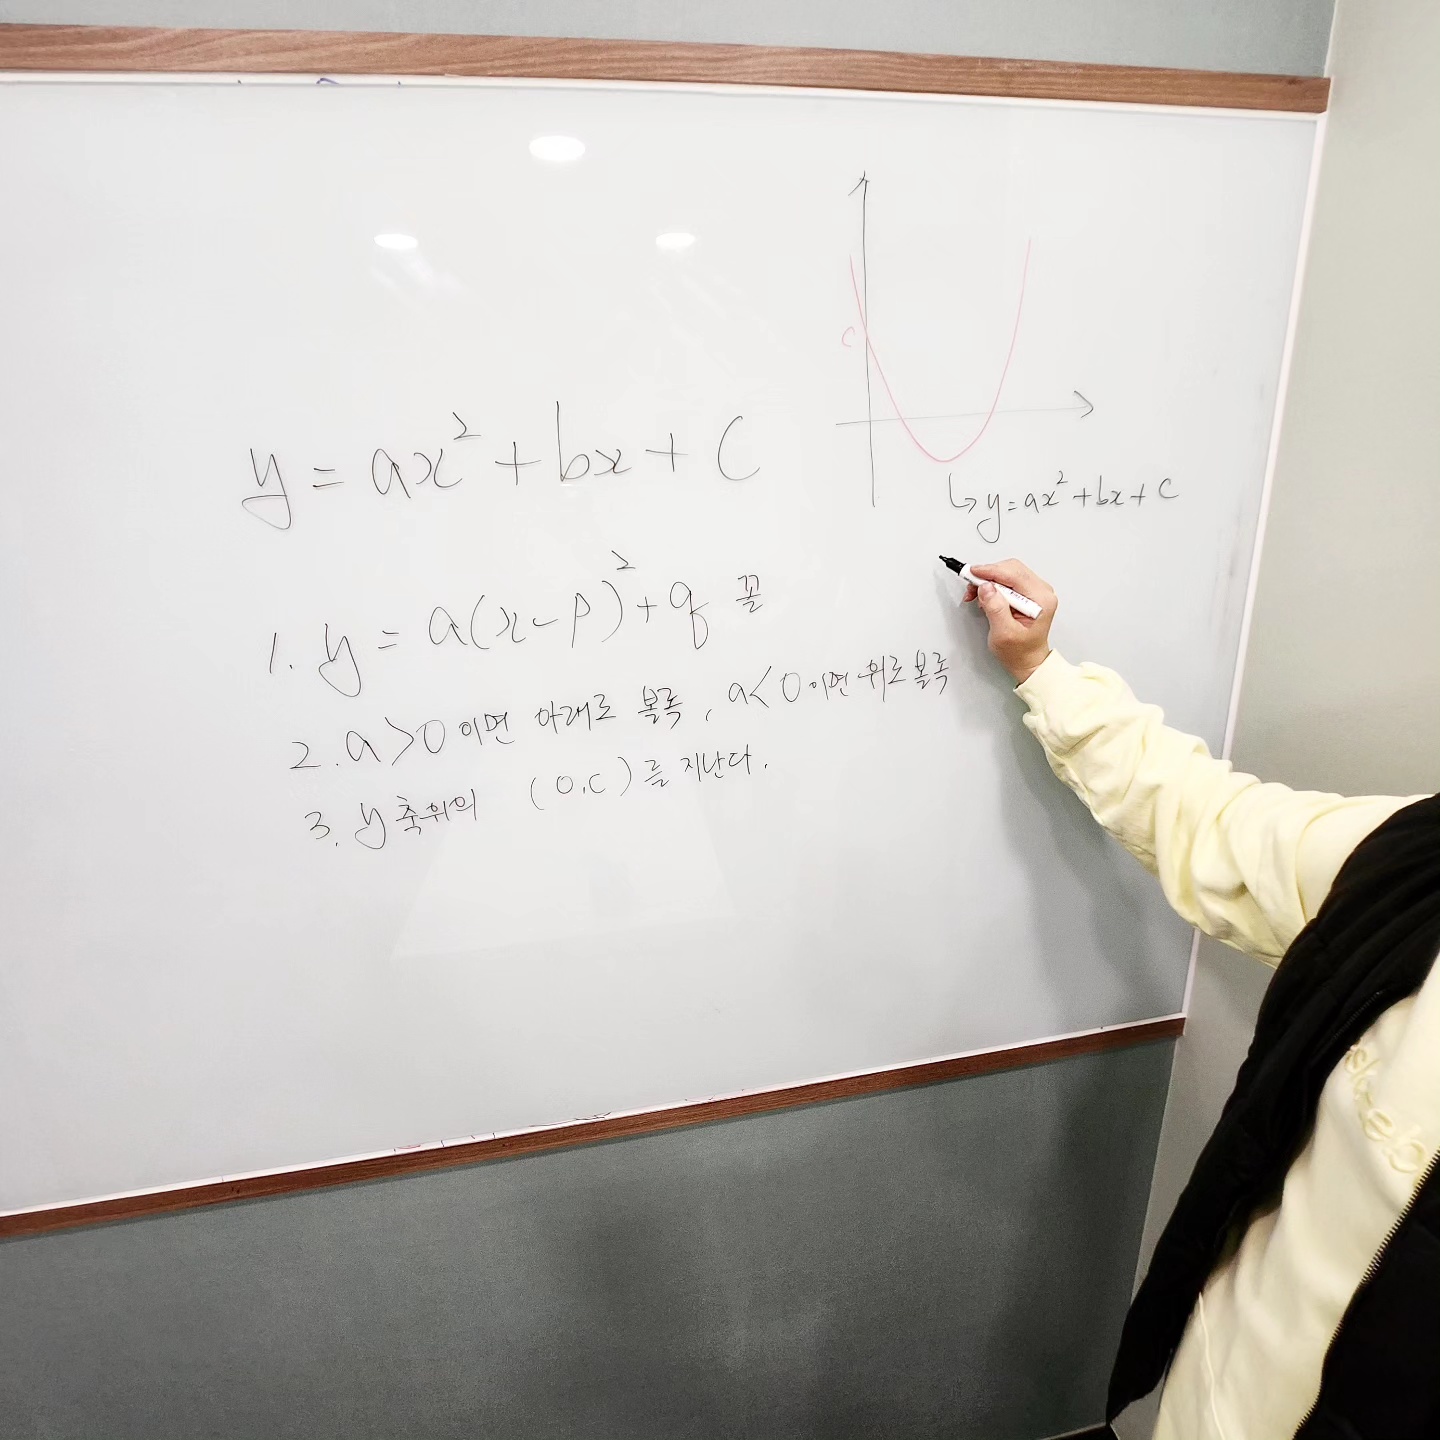 y = ax² + bx + c
1. y = a(x-p)² + q 꼴
2. a>0이면 아래로 볼록, a<0이면 위로 볼록
3. y축위의 (0,c)를 지난다.
c
↳ y=ax²+bx+c